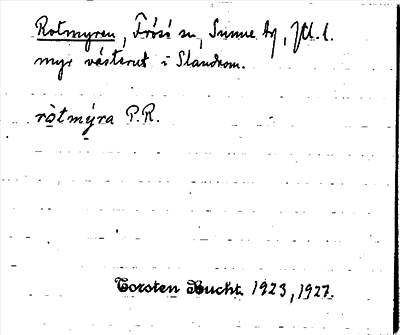 Rotmyren, Frösö sn, Sunne tg, Jtl. l.
myr västerut i Standrom.
rò̲tmý̲ra P.R.
Torsten Bucht 1923, 1927.